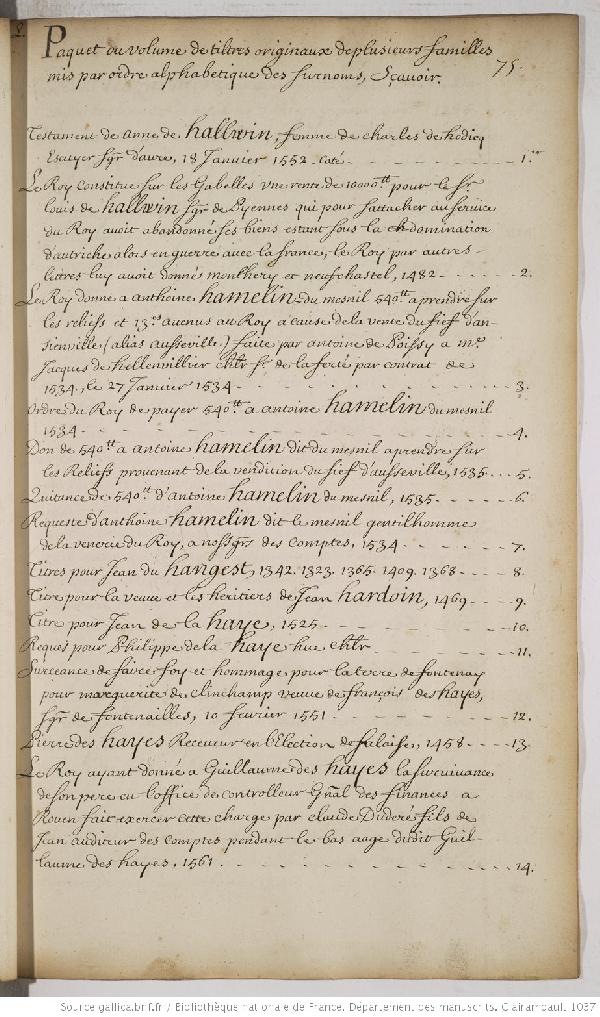 Paquet ou volume de tiltres originaux de plusieurs familles
mis par ordre alphabetique des surnoms, Sçavoir.
75.
Testament de Anne de hallwin, femme de Charles de hodicq
Escuyer sgr d'avre, 18 Janvier 1552. coté - - - 1.er
Le Roy constitue sur les Gabelles vne rente de 10000tt pour le sr.
louis de hallwin sgr de Pyennes qui pour s'attacher au service
du Roy avoit abandonné ses biens estant sous la domination
d'autriche alors en guerre avec la france, le Roy par autres
lettres luy avoit donné montlhery et neufchastel, 1482 - - - 2.
Le Roy donne a anthoine hamelin du mesnil 540tt a prendre sur
les reliefs et 13es avenus au Roy a cause de la vente du fief d'an-
sienville (alias ausseville) faite par antoine de Poissy a mre.
Jacques de hellenvillier chlr sr. de la ferté par contrat de
1534, le 27 Janvier 1534 - - - 3.
ordre du Roy de payer 540tt a antoine hamelin du mesnil
1534 - - - 4.
Don de 540tt a antoine hamelin dit du mesnil a prendre sur
les Reliefs provenant de la vendition du fief d'ausseville, 1535 - - - 5.
Quitance de 540tt d'antoine hamelin du mesnil, 1535 - - - 6.
Requeste d'anthoine hamelin dit le mesnil gentilhomme
de la venerie du Roy, a nossgrs des comptes, 1534 - - - 7.
Titres pour Jean du hangest, 1342. 1323. 1365. 1409. 1368 - - - 8.
Titre pour la veuve et les heritiers de Jean hardoin, 1469 - - - 9.
Titre pour Jean de la haye, 1525 - - - 10.
Reques pour Philippe de la haye hue chlr - - - 11.
Surceance de faire foy et hommage pour la terre de fontenay
pour marguerite de clinchamp veuve de françois des hayes,
sgr de fontenailles, 10 fevrier 1551 - - - 12.
Pierre des hayes Receveur en l'Election de falaise, 1458 - - - 13.
Le Roy ayant donné a Guillaume des hayes la survivance
de son pere en l'office de controlleur Gñal des finances a
Rouen fait exercer cette charge par claude Duderé fils de
Jean auditeur des comptes pendant le bas auge dudit Guil-
laume des hayes, 1561 - - - 14.
Source gallica.bnf.fr / Bibliothèque nationale de France. Département des manuscrits. Clairambault 1037